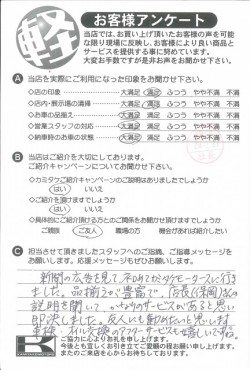 軽
お客様アンケート
当店では、お買い上げ頂いたお客様の声を可能
な限り現場に反映し、お客様により良い商品と
サービスを提供する事に努めています。
大変お手数ですが是非お声をお聞かせ下さい。
A 当店を実際にご利用になった印象をお聞かせ下さい。
◇店の印象 大満足 満足 ふつう やや不満 不満
◇店内・展示場の清掃 大満足 満足 ふつう やや不満 不満
◇お車の品揃え 大満足 満足 ふつう やや不満 不満
◇営業スタッフの対応 大満足 満足 ふつう やや不満 不満
◇納車時のお車の状態 大満足 満足 ふつう やや不満 不満
B 当店はご紹介を大切にしております。
ご紹介キャンペーンについてお聞かせ下さい。
◇カミタケご紹介キャンペーンのご説明はありましたでしょうか
はい いいえ
◇ご紹介を頂けますでしょうか
はい いいえ
◇具体的にご紹介頂ける方とのご関係をお聞かせ頂けますでしょうか
ご親族 ご友人 職場の方 機会があれば紹介したい
C 担当させて頂きましたスタッフへのご指摘、ご指導メッセージを
お願いします。応援メッセージもぜひお願いします。
新聞の広告を見て、初めてカミタケモータースに行き
ました。品揃えが豊富で、店長(保岡)さんの
説明を聞いて、かなりのサービスがあると思い
即決しました。友人にも勧めたいと思います。
車検、オイル交換のアフターサービスも嬉しいですね。
ご協力に心よりお礼申し上げます。
今後とも宜しくお引き立てご愛顧の程お願い申し上げます。
またのご来店を心からお待ちしております。